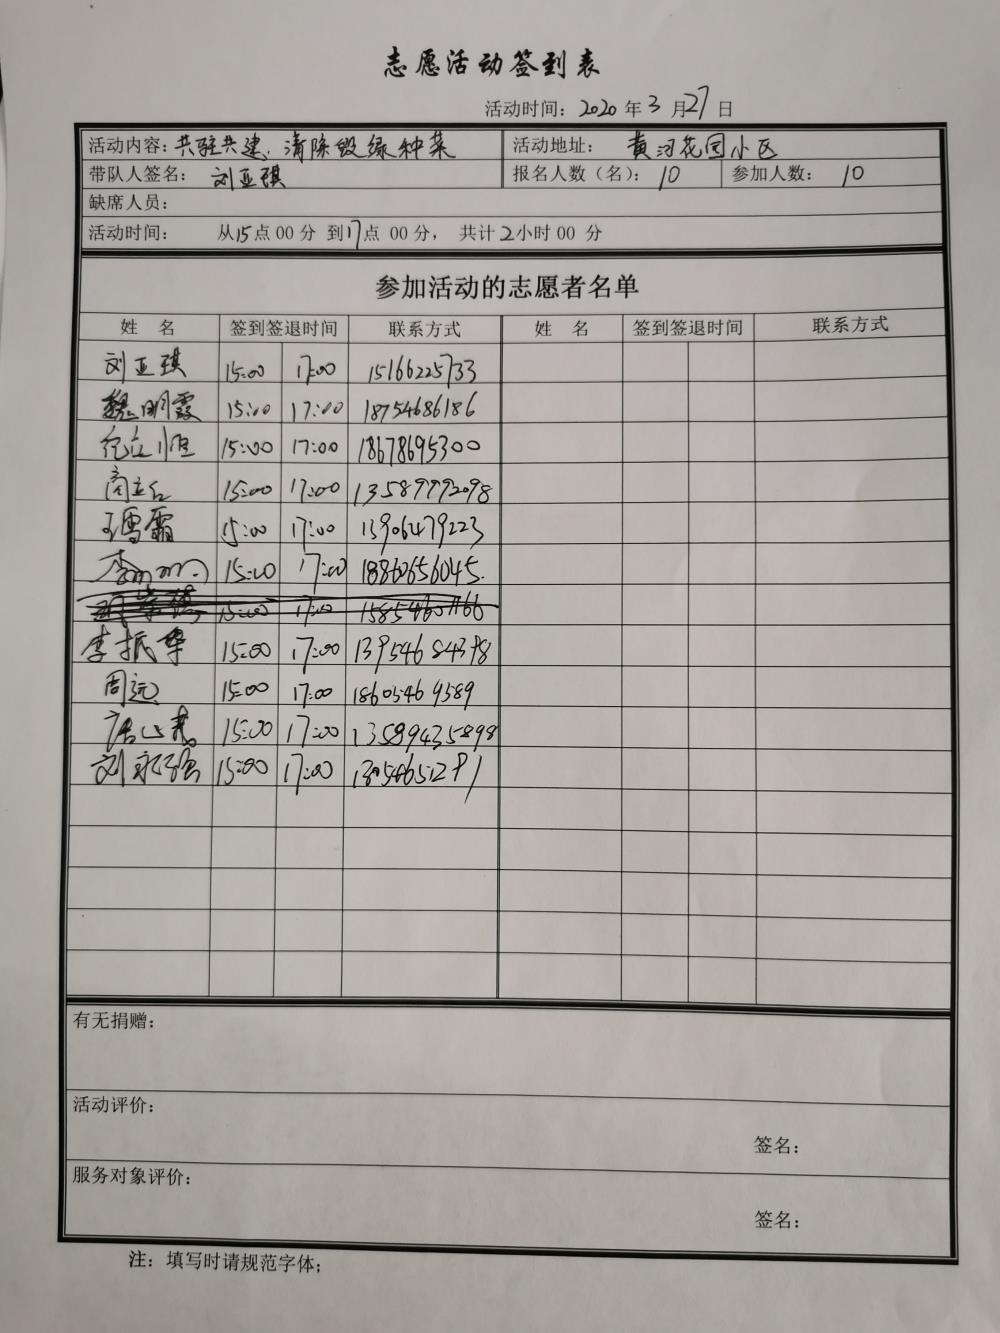 志愿活动签到表
活动时间：2020 年 3 月 27 日
活动内容：共驻共建，清除毁绿种菜 活动地址： 黄河花园小区
带队人签名： 刘亚琪 报名人数（名）： 10 参加人数： 10
缺席人员：
活动时间： 从15点 00 分 到17点 00 分， 共计2小时 00 分
参加活动的志愿者名单
姓 名 签到签退时间 联系方式 姓 名 签到签退时间 联系方式
刘亚琪 15:00 17:00 15166225733
魏明霞 15:00 17:00 18754686186
纪立恒 15:00 17:00 18678695300
商立红 15:00 17:00 13589992098
王雪霜 15:00 17:00 13906479223
李 15:00 17:00 18860656045
15:00 17:00
李振华 15:00 17:00 13954684398
周远 15:00 17:00 18605469589
唐 15:00 17:00 13589435898
刘永强 15:00 17:00
有无捐赠：
活动评价：
签名：
服务对象评价：
签名：
注：填写时请规范字体；